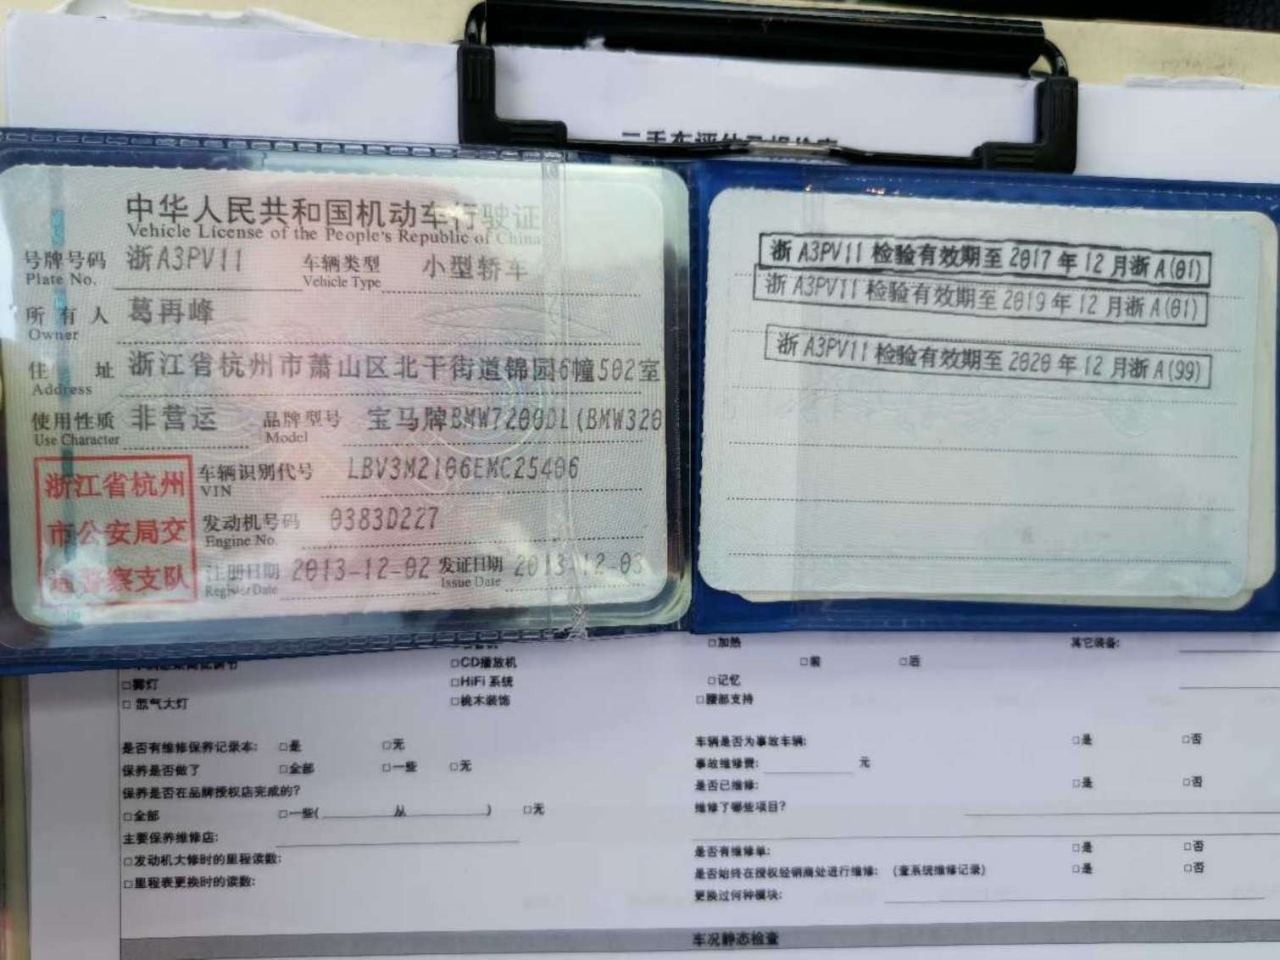 中华人民共和国机动车行驶证
Vehicle License of the People's Republic of China
号牌号码 浙A3PV11 车辆类型 小型轿车
Plate No. Vehicle Type
所有人 葛再峰
Owner
住址 浙江省杭州市萧山区北干街道锦园6幢502室
Address
使用性质 非营运 品牌型号 宝马牌BMW7200DL(BMW320
Use Character Model
车辆识别代号 LBV3M2106EMC25406
VIN
发动机号码 0383D227
Engine No.
注册日期 2013-12-02 发证日期 2013-12-03
Register Date Issue Date
浙江省杭州
市公安局交
通警察支队
浙A3PV11 检验有效期至2017年12月浙A(01)
浙A3PV11 检验有效期至2019年12月浙A(01)
浙A3PV11 检验有效期至2020年12月浙A(99)
□CD播放机
□雾灯 □HiFi 系统
□氙气大灯 □桃木装饰
□加热 其它装备:
□前 □后
□记忆
□腰部支持
是否有维修保养记录本: □是 □无
保养是否做了 □全部 □一些 □无
保养是否在品牌授权店完成的?
□全部 □一些( 从 ) □无
主要保养维修店:
□发动机大修时的里程读数:
□里程表更换时的读数:
车辆是否为事故车辆: □是 □否
事故维修费: 元
是否已维修: □是 □否
维修了哪些项目?
是否有维修单: □是 □否
是否始终在授权经销商处进行维修: (查系统维修记录) □是 □否
更换过何种模块:
车况静态检查